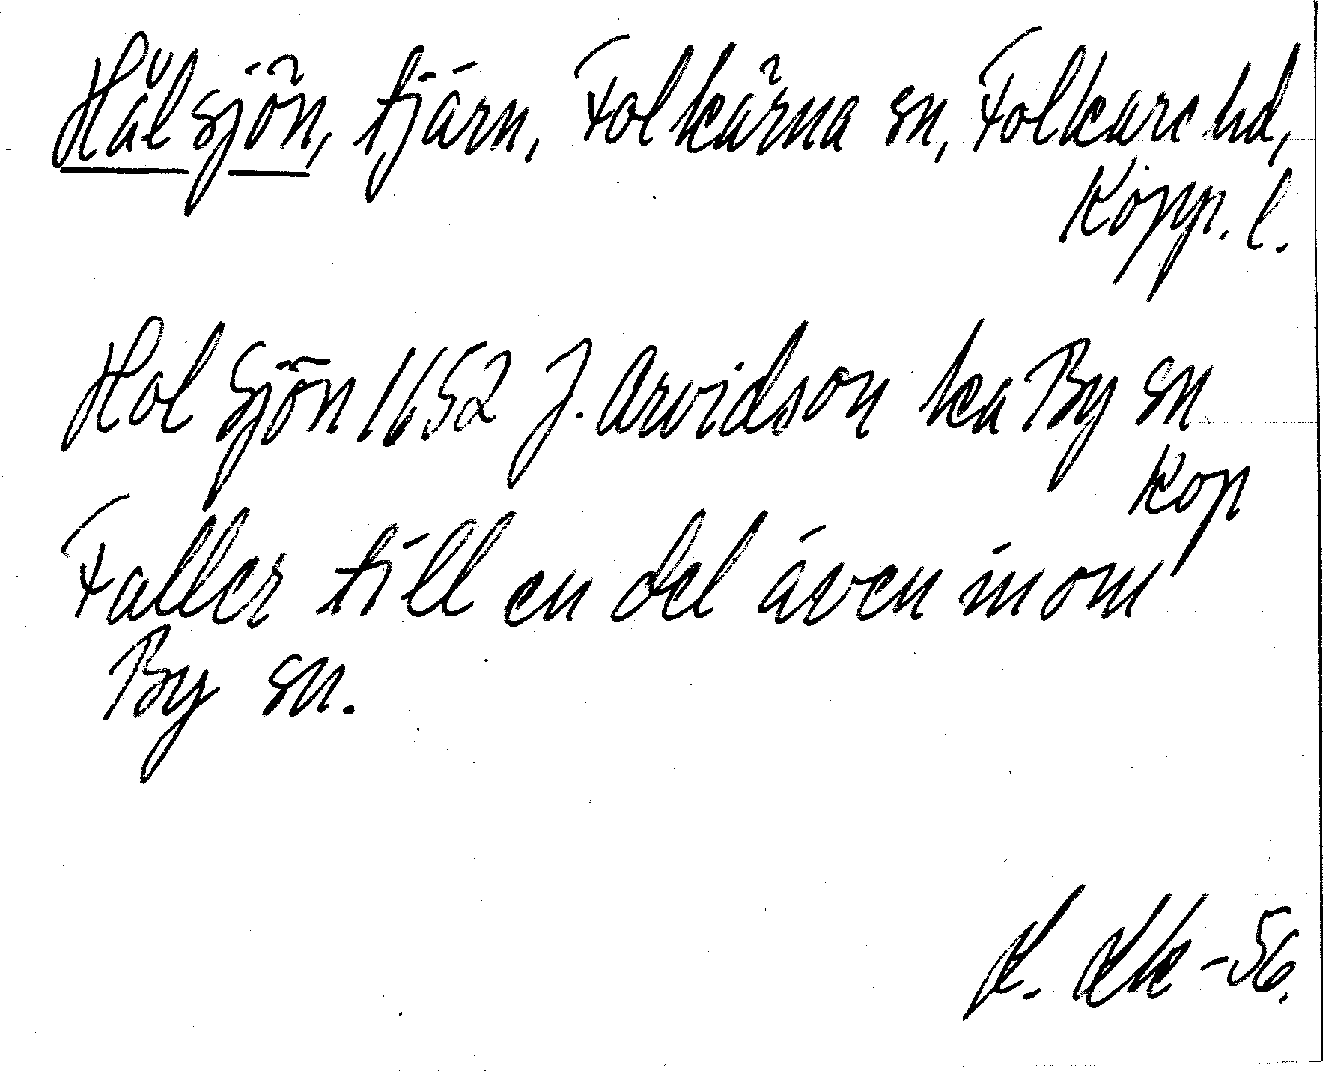 Hålsjön, tjärn, Folkärna sn, Folkare hd,
Kopp. l.
Hol Sjön 1652 J. Arvidson ka By sn
Kop
Faller till en del även inom
By sn.
-56.